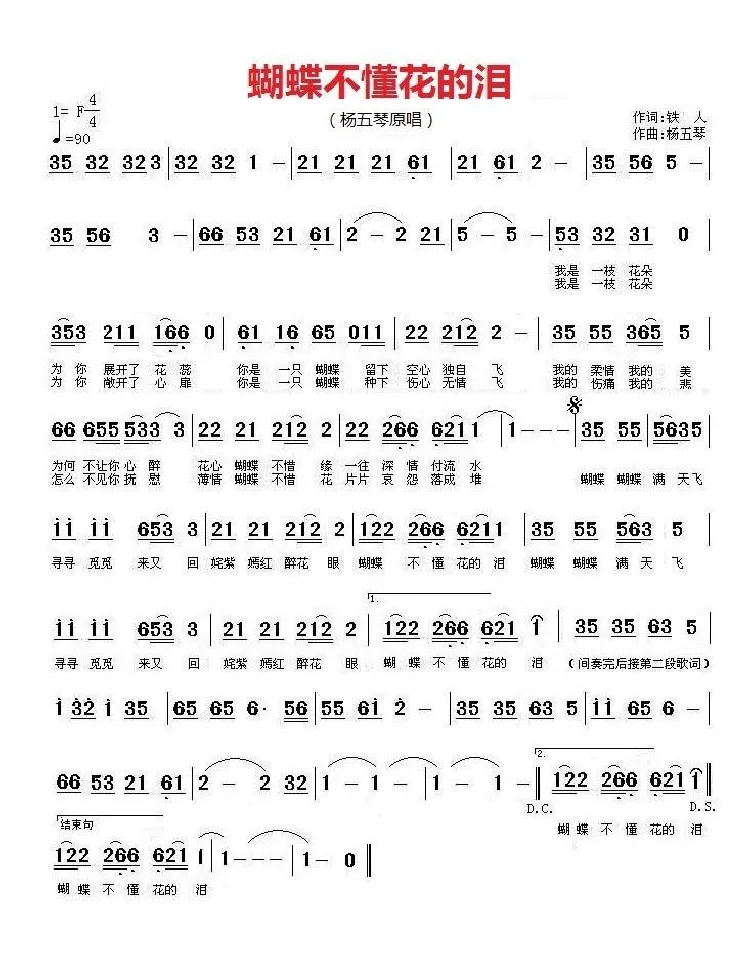 蝴蝶不懂花的泪
（杨五琴原唱）
1= F 4/4
♩=90
作词:铁 人
作曲:杨五琴
35 32 323 | 32 32 1 - | 21 21 21 61 | 21 61 2 - | 35 56 5 - |
35 56 3 - | 66 53 21 61 | 2 - 2 21 | 5 - 5 - | 53 32 31 0 |
我是 一枝 花朵
我是 一枝 花朵
353 211 166 0 | 61 16 65 011 | 22 212 2 - | 35 55 365 5 |
为 你 展开了 花 蕊 你是 一只 蝴蝶 留下 空心 独自 飞 我的 柔情 我的 美
为 你 敞开了 心 扉 你是 一只 蝴蝶 种下 伤心 无情 飞 我的 伤痛 我的 悲
66 655 533 3 | 22 21 212 2 | 22 266 6211 | 1--- | 35 55 | 5635 |
为何 不让你 心 醉 花心 蝴蝶 不惜 缘 一往 深 情 付流 水
怎么 不见你 抚 慰 薄情 蝴蝶 不惜 花 片片 哀 怨 落成 堆 蝴蝶 蝴蝶 满 天飞
11 11 653 3 | 21 21 212 2 | 122 266 621 1 | 35 55 563 5 |
寻寻 觅觅 来又 回 姹紫 嫣红 醉花 眼 蝴蝶 不 懂 花的 泪 蝴蝶 蝴蝶 满 天 飞
1.
11 11 653 3 | 21 21 212 2 | 122 266 621 1 | 35 35 63 5 |
寻寻 觅觅 来又 回 姹紫 嫣红 醉花 眼 蝴 蝶 不 懂 花的 泪 （间奏完后接第二段歌词）
1 32 1 35 | 65 65 6· 56 | 55 61 2 - | 35 35 63 5 | 11 65 6 - |
2.
66 53 21 61 | 2 - 2 32 | 1 - 1 - | 1 - - - || 122 266 621 1 ||
D.C. D.S.
蝴 蝶 不 懂 花的 泪
结束句
122 266 621 1 | 1 - - - | 1 - 0 ||
蝴 蝶 不 懂 花的 泪